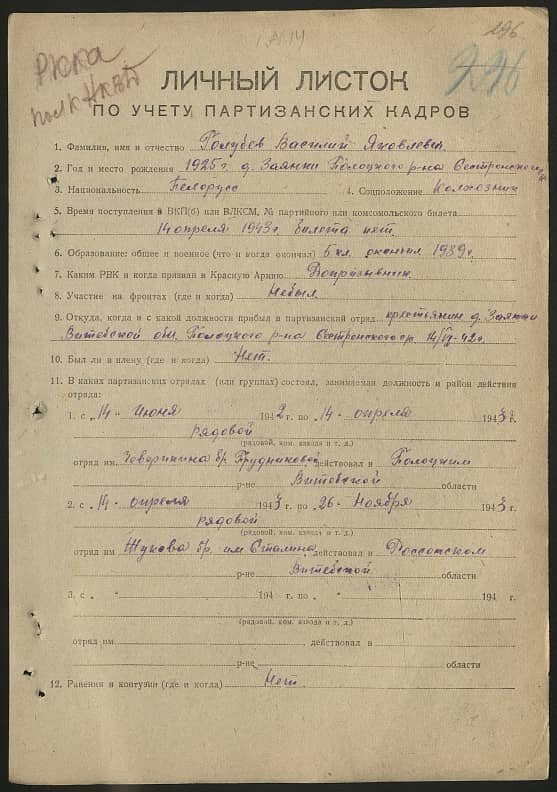 296
РККА
полк НКВД
226
ЛИЧНЫЙ ЛИСТОК
ПО УЧЕТУ ПАРТИЗАНСКИХ КАДРОВ
1. Фамилия, имя и отчество Голубев Василий Яковлевич
2. Год и место рождения 1925 г. д. Заянки Полоцкого р-на Сестронского
3. Национальность Белорусс 4. Соцположение Колхозник
5. Время поступления в ВКП(б) или ВЛКСМ, № партийного или комсомольского билета
14 апреля 1943 г. билета нет.
6. Образование: общее и военное (что и когда окончил) 5 кл. окончил 1939 г.
7. Каким РВК и когда призван в Красную Армию Допризывник.
8. Участие на фронтах (где и когда) Небыл.
9. Откуда, когда и с какой должности прибыл в партизанский отряд крестьянин д. Заянки
Витебской обл. Полоцкого р-на Сестронского 14/VI-42 г.
10. Был ли в плену (где и когда) Нет.
11. В каких партизанских отрядах (или группах) состоял, занимаемая должность и район действия
отряда:
1. с „14" Июня 1942 г. по „14" апреля 1943 г.
рядовой
(рядовой, ком. взвода и т. д.)
отряд им. бр. действовал в Полоцким
р-не Витебской области
2. с „14" апреля 1943 г. по „26" Ноября 1943 г.
рядовой
(рядовой, ком. взвода и т. д.)
отряд им Жукова бр. им Сталина действовал в Россонском
р-не Витебской области
3. с „ " 194 г. по „ " 194 г.
(рядовой, ком. взвода и т. д.)
отряд им действовал в
р-не области
12. Ранения и контузии (где и когда) Нет.